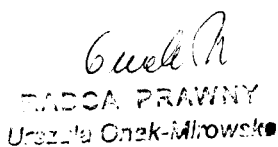 RADCA PRAWNY
Urszula Onak-Mirowska